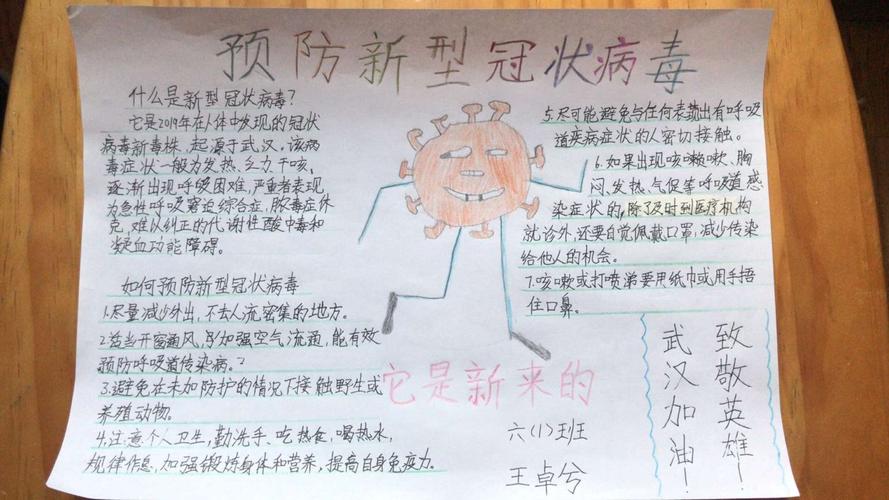 预防新型冠状病毒
什么是新型冠状病毒?
它是2019年在人体中发现的冠状
病毒新毒株,起源于武汉。该病
毒症状一般为发热、乏力、干咳、
逐渐出现呼吸困难,严重者表现
为急性呼吸窘迫综合症、脓毒症休
克,难以纠正的代谢性酸中毒和
凝血功能障碍。
如何预防新型冠状病毒
1.尽量减少外出,不去人流密集的地方。
2.适当开窗通风,加强空气流通,能有效
预防呼吸道传染病。
3.避免在未加防护的情况下接触野生或
养殖动物。
4.注意个人卫生,勤洗手、吃热食,喝热水,
规律作息,加强锻炼身体和营养,提高自身免疫力。
5.尽可能避免与任何表露出有呼吸
道疾病症状的人密切接触。
6.如果出现咳嗽、胸
闷、发热、气促等呼吸道感
染症状的,除了及时到医疗机构
就诊外,还要自觉佩戴口罩,减少传染
给他人的机会。
7.咳嗽或打喷涕要用纸巾或用手捂
住口鼻。
它是新来的
六(1)班
王卓兮
致敬英雄!
武汉加油!